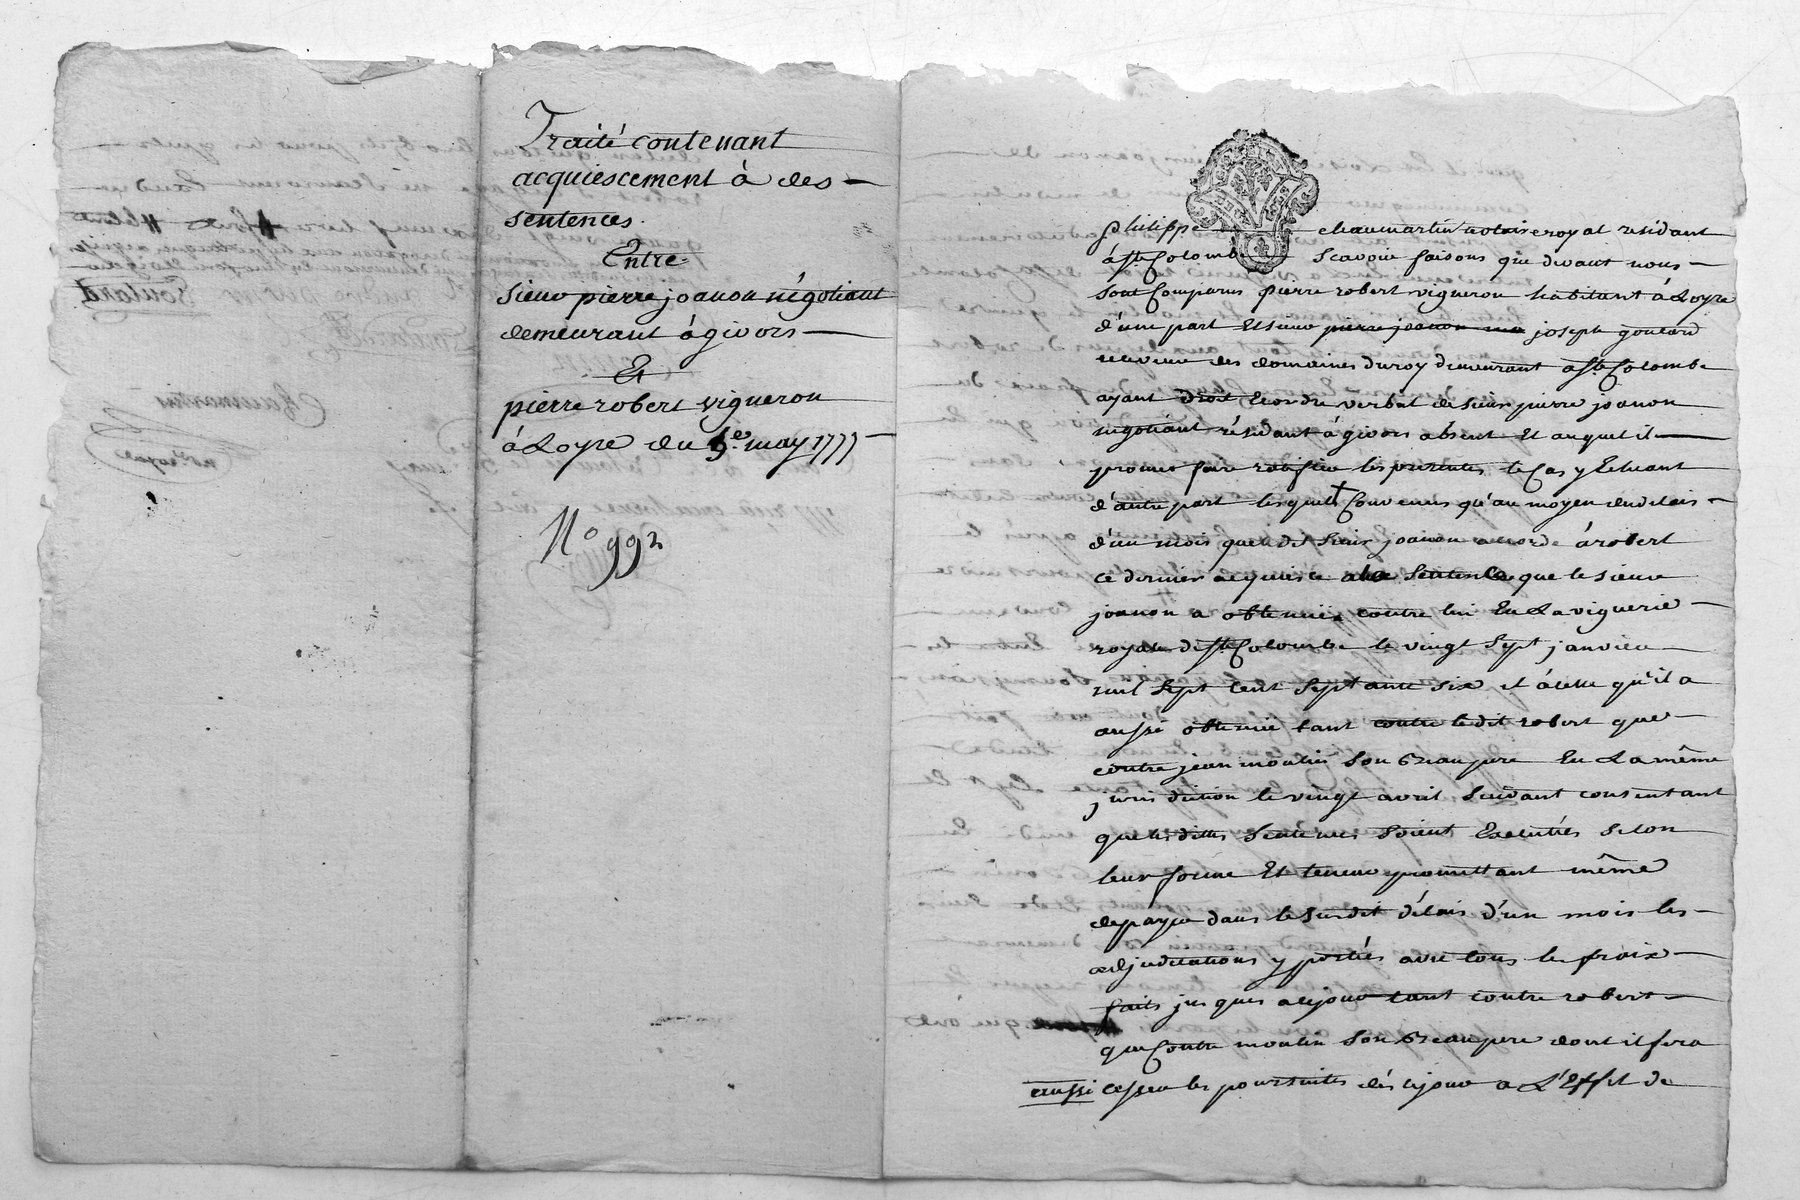 Traité contenant
acquiescement à des
sentences.
Entre
sieur pierre joanon négotiant
demeurant à givors
Et
pierre robert vigneron
à Loyre du 9e. may 1777
N° 992
philippe chaumartin notaire royal résidant
à Ste Colombe scavoir faisons que devant nous
sont Comparus pierre robert vigneron habitant à Loyre
d'une part Et sieur pierre joanon joseph goutard
receveur des domaines du roy demeurant a Ste Colombe
ayant droit et ordre verbal de sieur pierre joanon
négotiant résidant à givors absent Et auquel il
promet faire ratifier les presentes le Cas y Echeant
d'autre part lesquels Convenus qu'au moyen du delais
d'un mois que le dit sieur joanon accorde à robert
ce dernier acquiesce a la Sentence que le sieur
joanon a obtenüe contre lui En La viguerie
royale de Ste Colombe le vingt sept janvier
mil sept cent septante six et à celle qu'il a
aussi obtenüe tant contre ledit robert que
contre jean moulin son Beaupere En La même
jurisdiction le vingt avril Suivant consentant
que les dittes Sentences soient Executées selon
leur forme Et teneur promettant même
de payer dans le susdit délais d'un mois les
adjudications y portées avec tous les fraix
faits jusques a cejour tant contre robert
que Contre moulin son Beaupere dont il fera
aussi cesser les poursuites dès cejour a L'Effet de